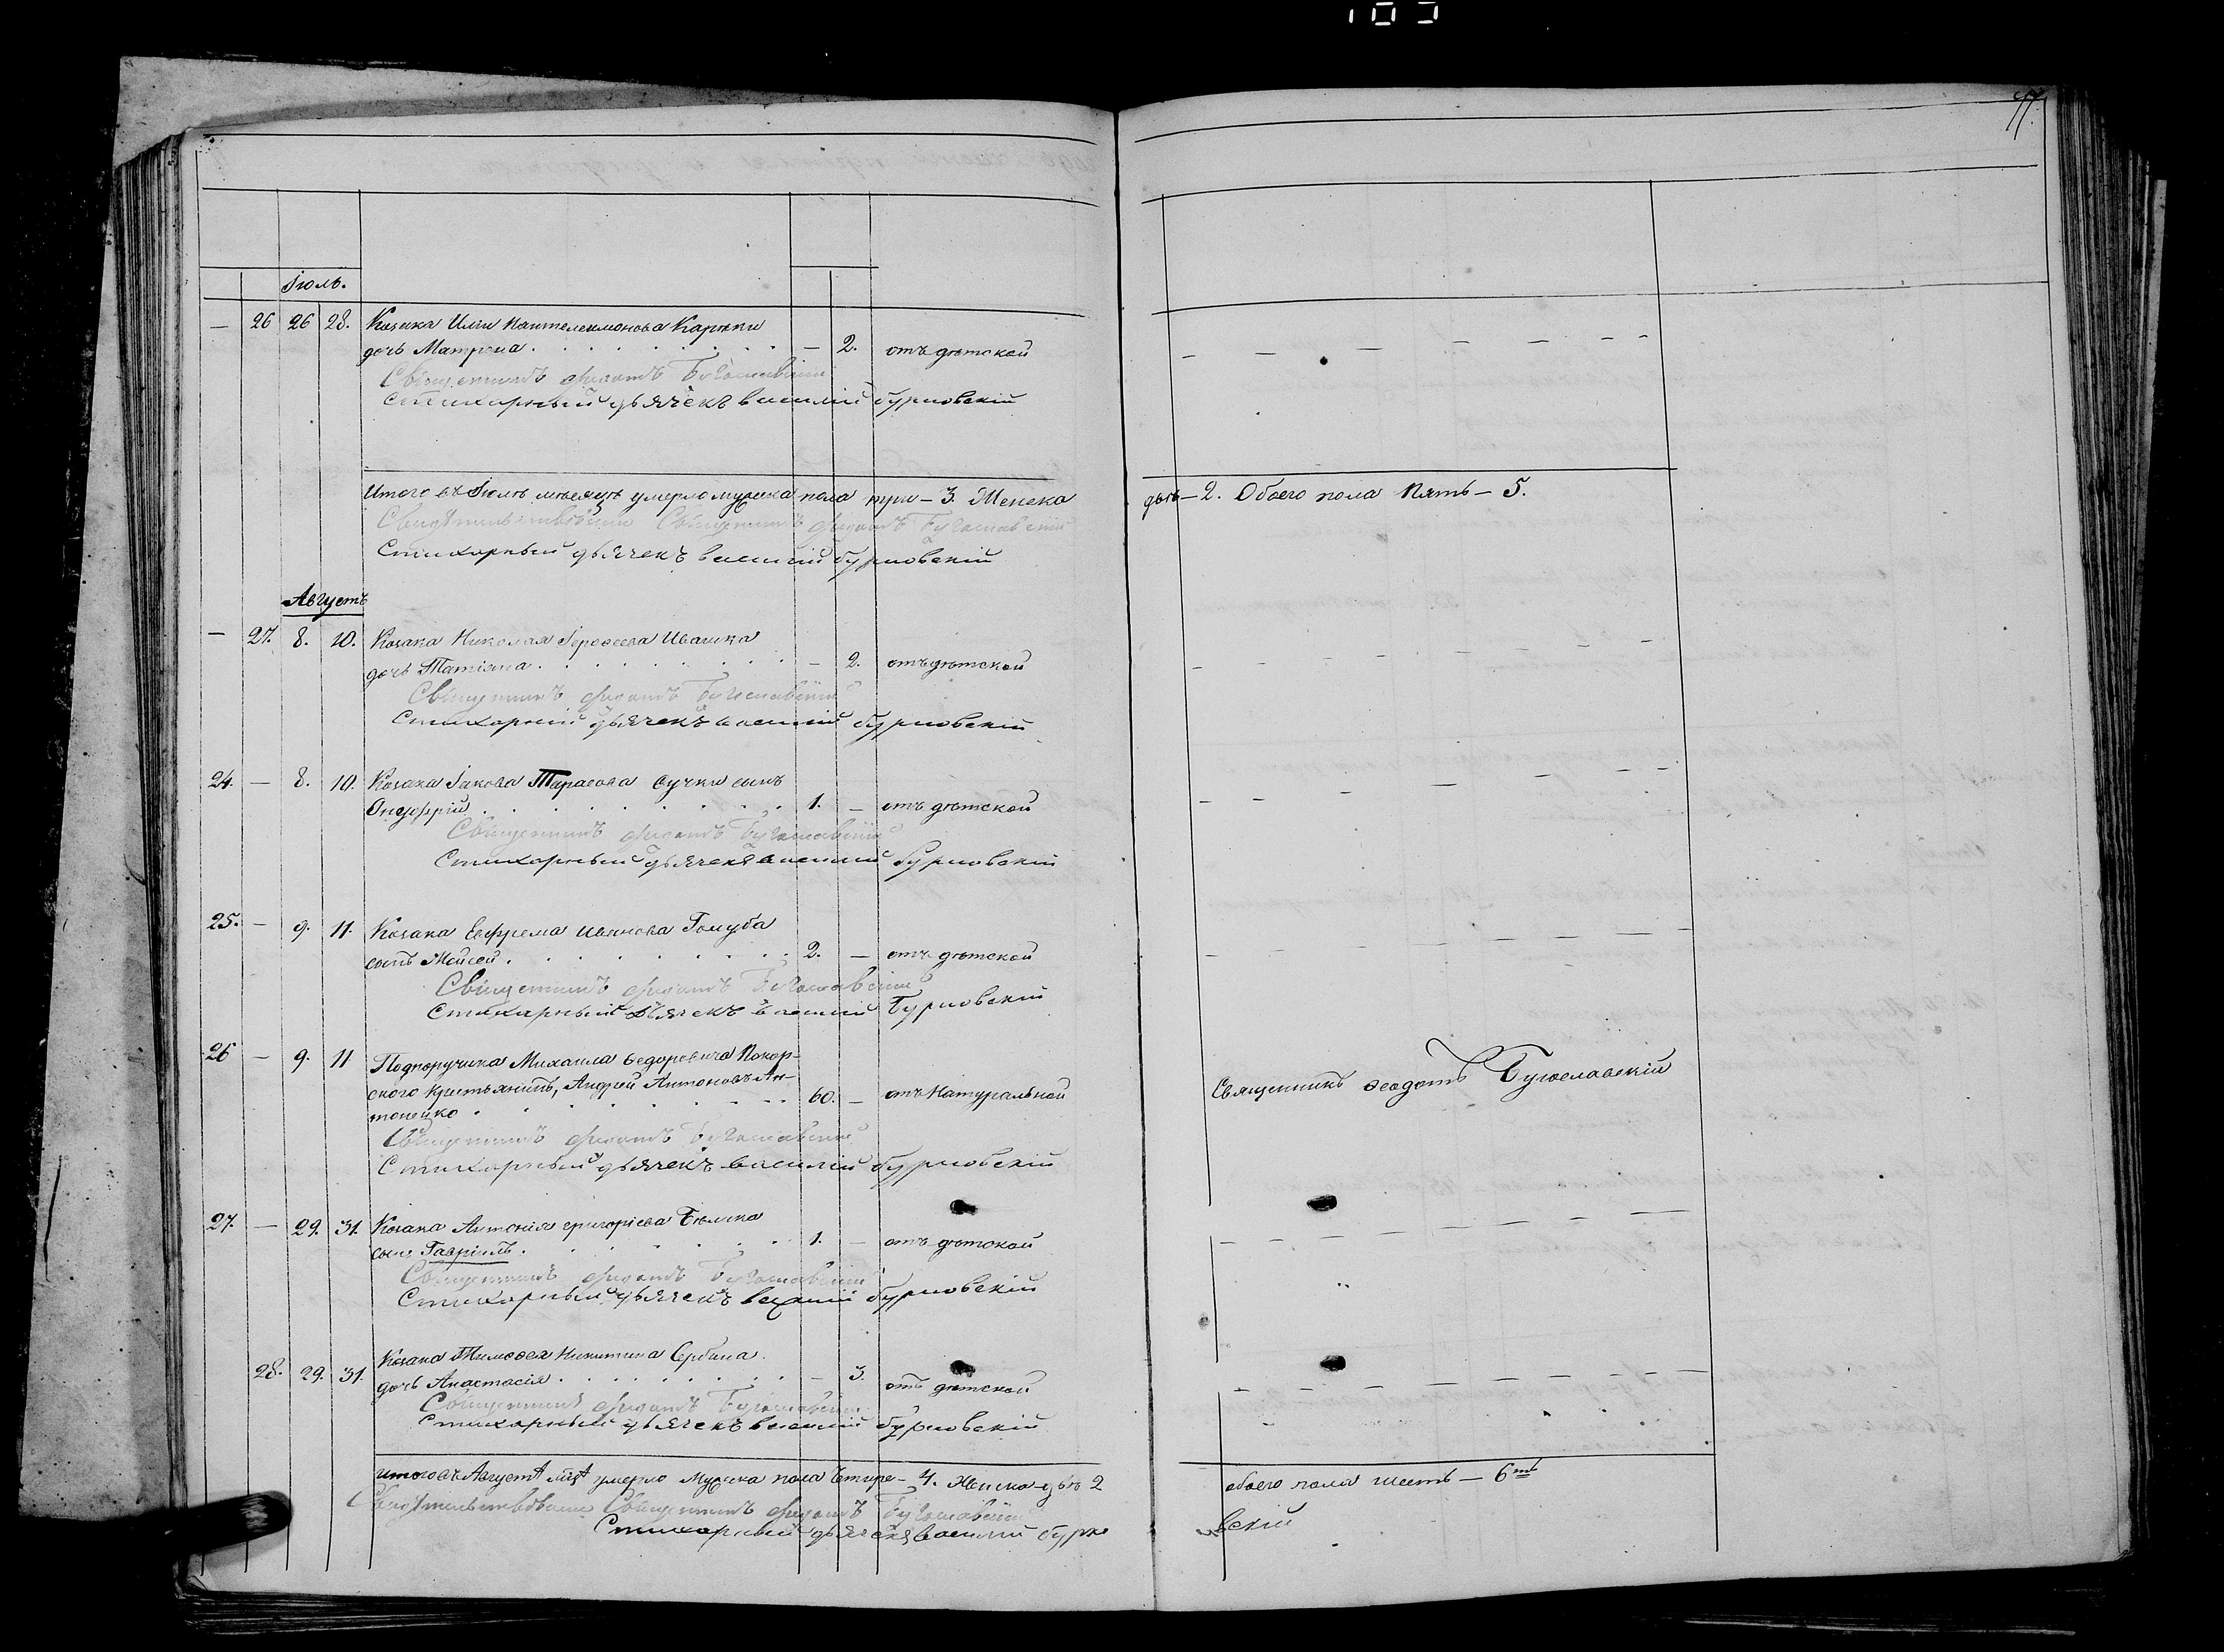 77.
Іюль.
— 26 26 28. Козака Иліи Пантелеимонова Карюки
дочь Матрона . . . . . . . . — 2. отъ дѣтской — — — — — —
Священникъ Феодотъ Бугославскій
Стихарный дьячекъ Василій Бурновскій
Итого въ Іюлѣ мѣсяцѣ умерло мужска пола три — 3. Женска двѣ — 2. Обоего пола пять — 5.
Свидѣтельствовали Священникъ Феодотъ Бугославскій
Стихарный дьячекъ Василій Бурновскій
Августъ
— 27. 8. 10. Козака Николая Іерофеева Ивашка
дочь Татіана . . . . . . . . — 2. отъ дѣтской — — — — — —
Священникъ Феодотъ Бугославскій
Стихарній дьячекъ Василій Бурновскій
24. — 8. 10. Козака Іакова Тарасова Сучки сынъ
Онуфрій . . . . . . . . 1. — отъ дѣтской — — — — — —
Священникъ Феодотъ Бугославскій
Стихарный дьячекъ Василий Бурновскій
25. — 9. 11. Козака Евфрема Иванова Голуба
сынъ Моисей . . . . . . . . 2. — отъ дѣтской — — — — — —
Священникъ Феодотъ Бугославскій
Стихарный дьячекъ Василий Бурновскій
26 — 9. 11 Подпоручика Михаила Ѳедоровича Покор-
ского крестьянинъ, Андрей Антоновъ Ан-
тонецко . . . . . . . . 60. — отъ Натуральной Священникъ Ѳеодотъ Бугославскій
Священникъ Феодотъ Бугославскій
Стихарный дьячекъ Василій Бурновскій
27. — 29. 31. Козака Антонія Григоріева Бѣлика
сынъ Гавріилъ . . . . . . . . 1. — отъ дѣтской — — — — — —
Священникъ Феодотъ Бугославскій
Стихарный дьячекъ Василій Бурновскій
28. 29. 31. Козака Тимоѳея Никитина Сербина
дочь Анастасія . . . . . . . . — 3. отъ дѣтской — — — — — —
Священникъ Феодотъ Бугославскій
Стихарный дьячекъ Василій Бурновскій
Итого въ Августѣ мцѣ умерло Мужска пола четыре — 4. Женска двѣ 2 обоего пола шесть — 6ть
Свидѣтельствовали Священникъ Феодотъ Бугославскій
Стихарный дьячекъ Василий Бурно
вскій